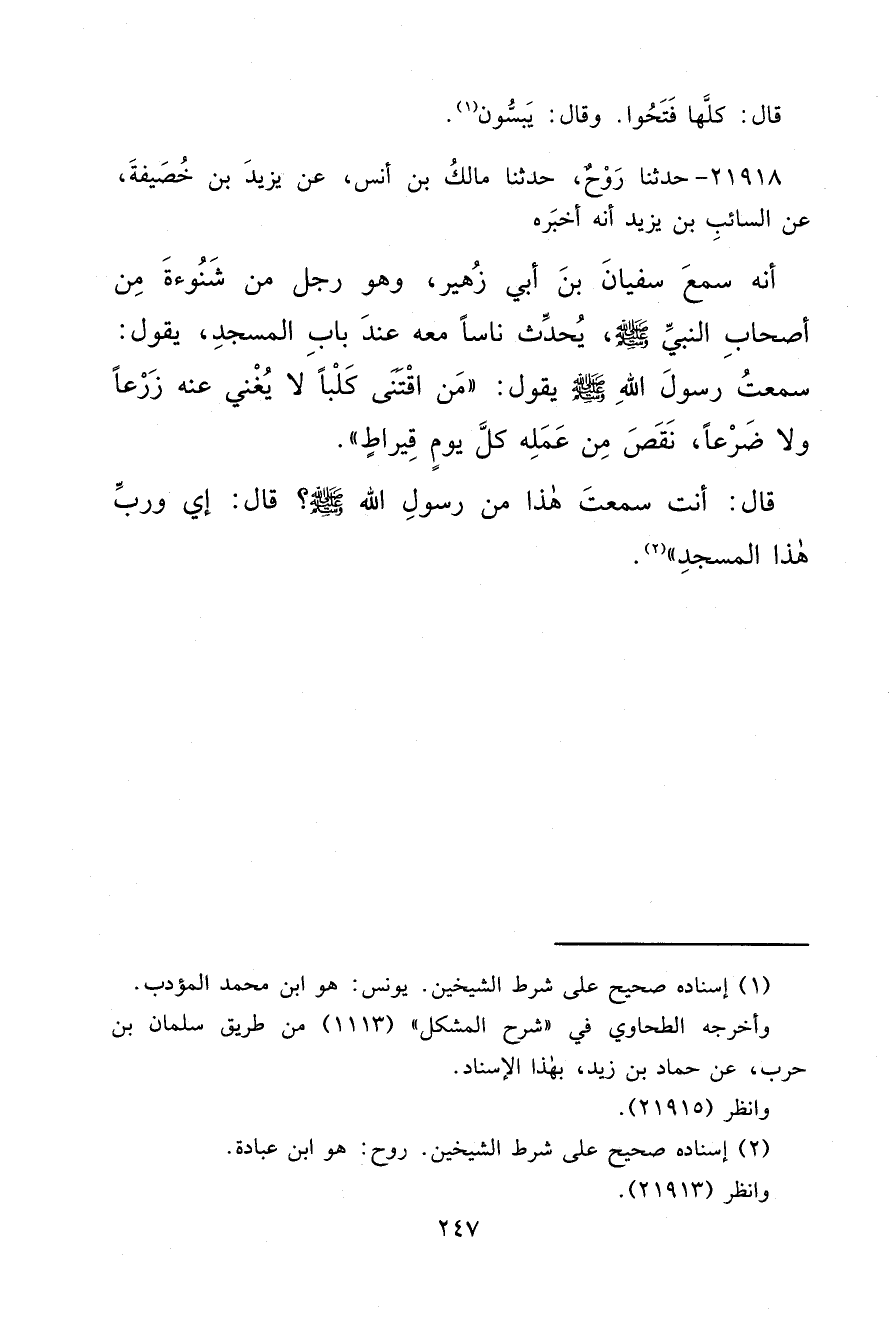 قال: كلَّها فَتَحُوا. وقال: يَبسُّون(١).
٢١٩١٨- حدثنا رَوْحٌ، حدثنا مالكُ بن أنس، عن يزيدَ بن خُصَيفةَ،
عن السائبِ بن يزيد أنه أخبَره
أنه سمعَ سفيانَ بنَ أبي زُهير، وهو رجل من شَنُوءةَ مِن
أصحابِ النبيِّ ﷺ، يُحدِّث ناساً معه عندَ بابِ المسجدِ، يقول:
سمعتُ رسولَ اللهِ ﷺ يقول: «مَن اقْتَنَى كَلْباً لا يُغْني عنه زَرْعاً
ولا ضَرْعاً، نَقَصَ مِن عَمَلِه كلَّ يومٍ قِيراطٍ».
قال: أنت سمعتَ هٰذا من رسولِ الله ﷺ؟ قال: إي وربِّ
هٰذا المسجدِ»(٢).
(١) إسناده صحيح على شرط الشيخين. يونس: هو ابن محمد المؤدب.
وأخرجه الطحاوي في «شرح المشكل» (١١١٣) من طريق سلمان بن
حرب، عن حماد بن زيد، بهٰذا الإسناد.
وانظر (٢١٩١٥).
(٢) إسناده صحيح على شرط الشيخين. روح: هو ابن عبادة.
وانظر (٢١٩١٣).
٢٤٧